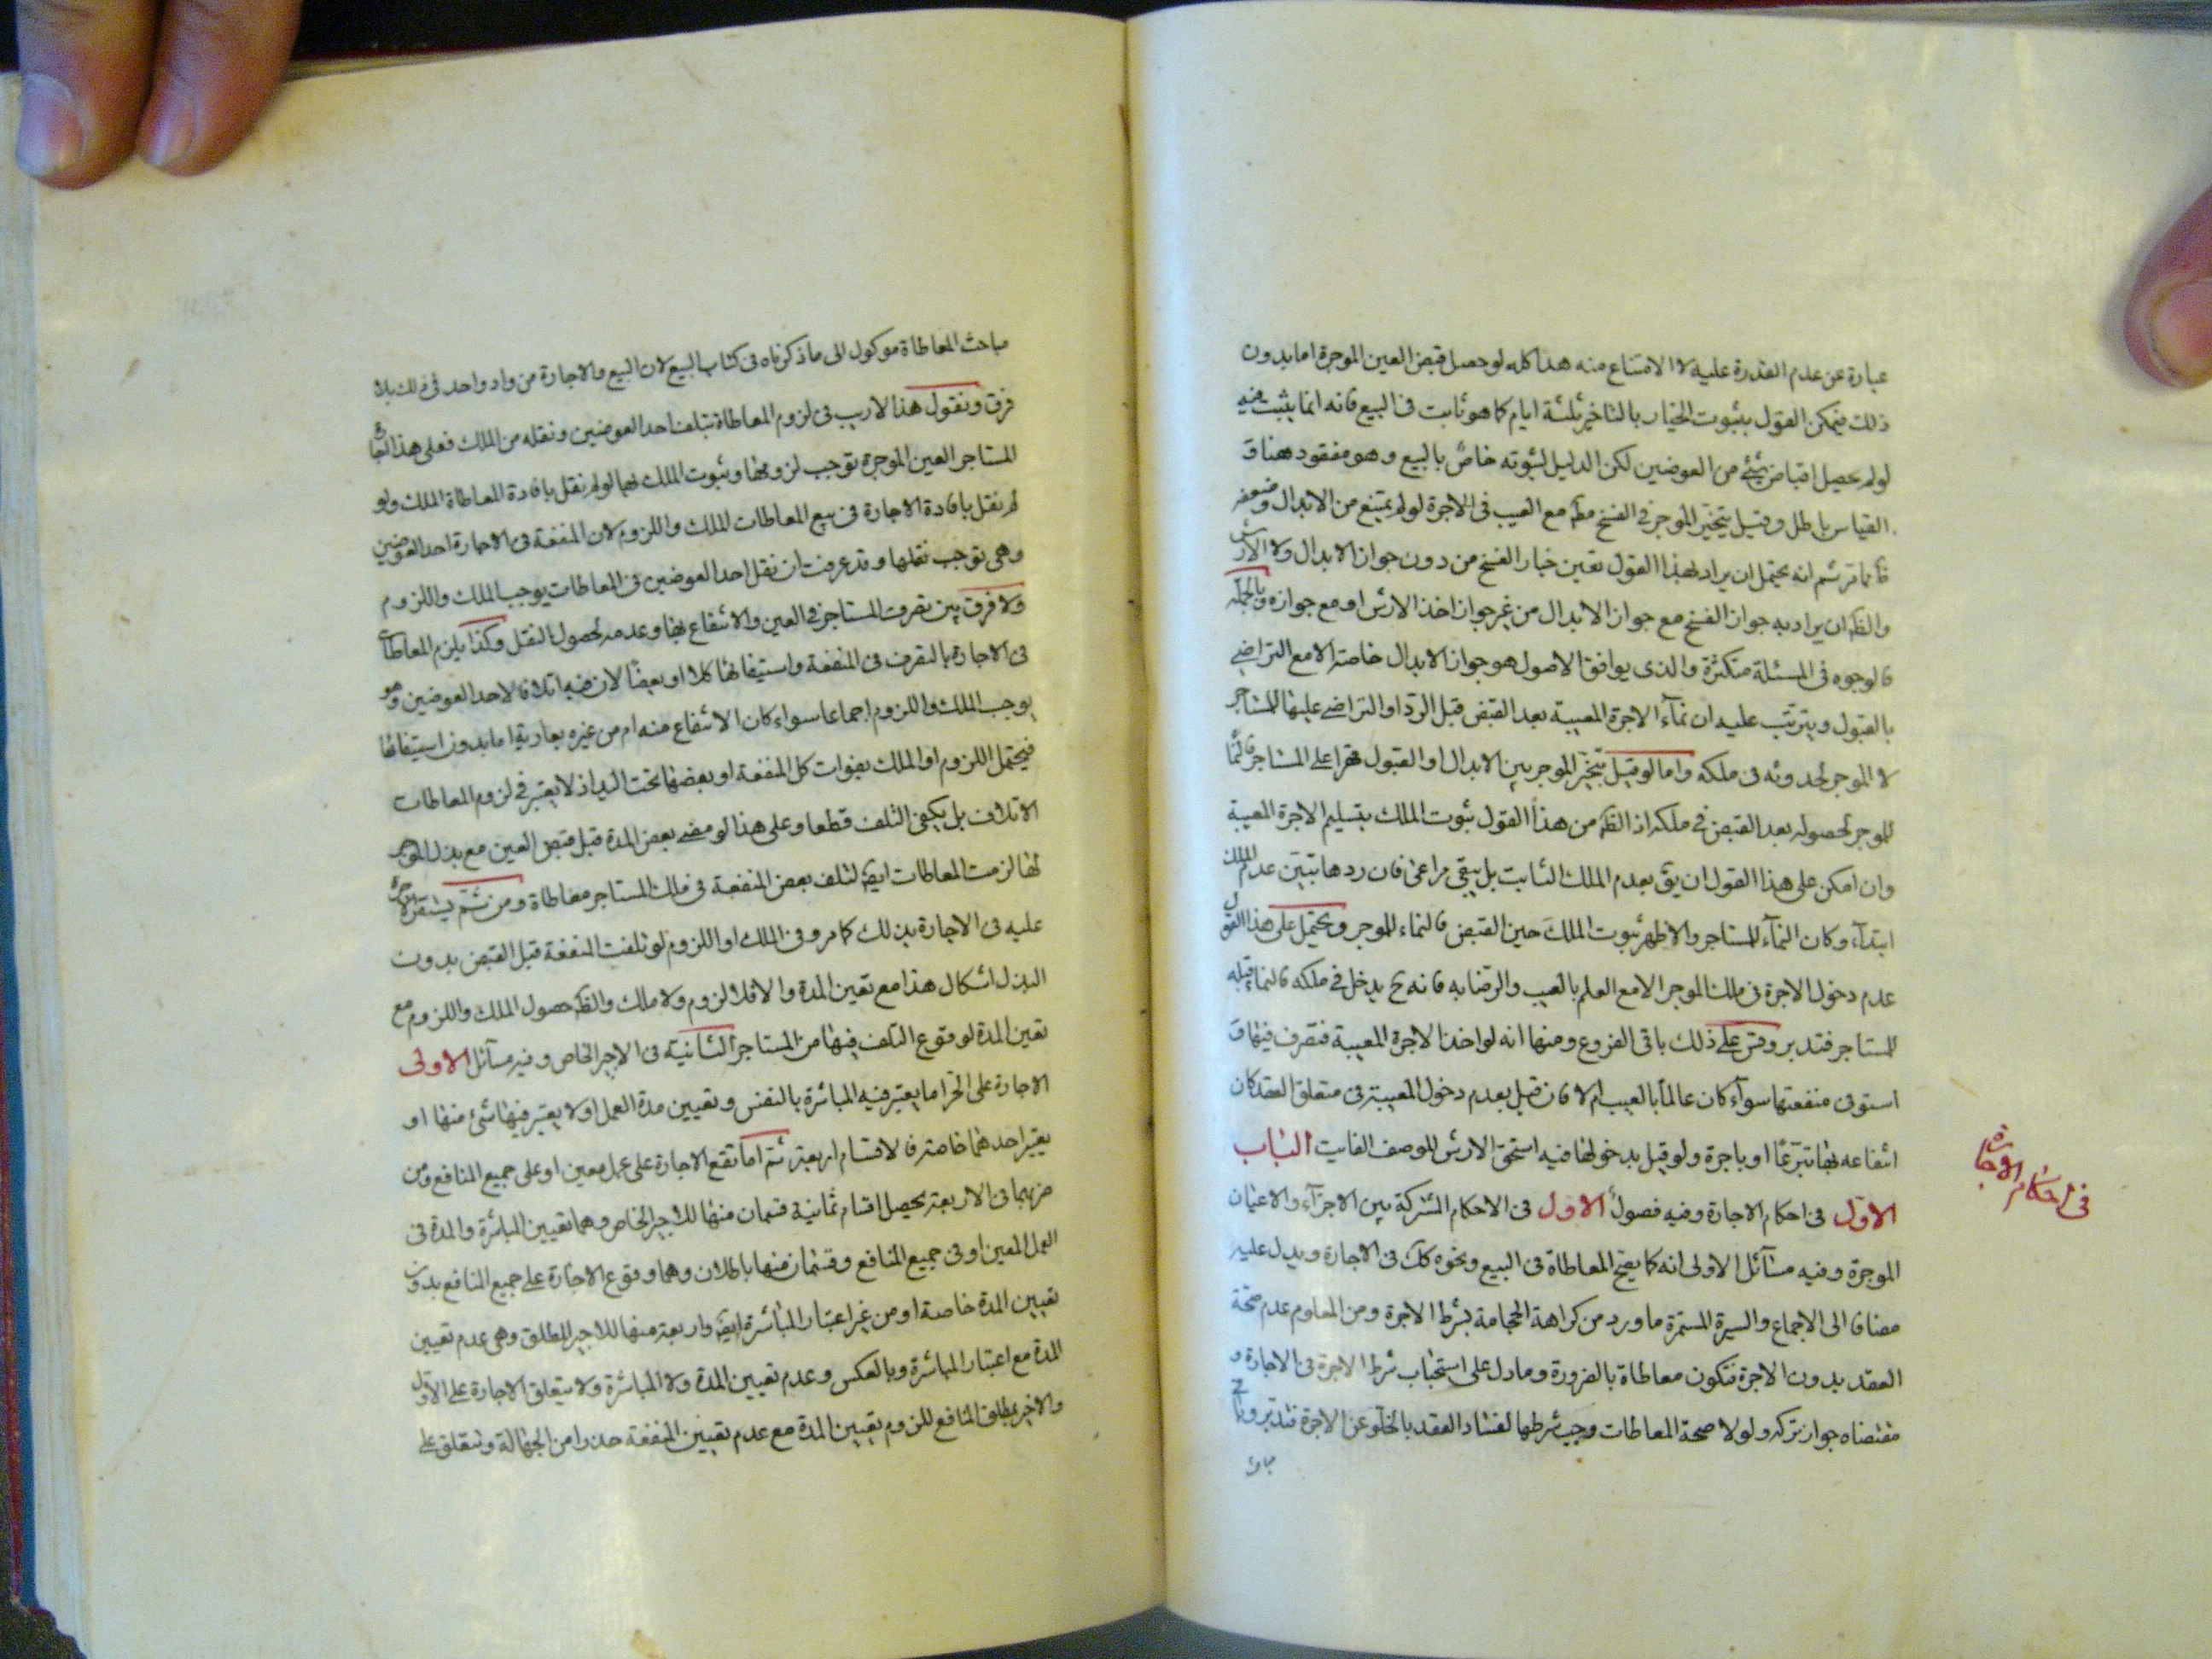 عبارة عن عدم القدرة عليه لا الامتناع منه هذا كله لو حصل قبض العين الموجرة اما بدون
ذلك فيمكن القول بثبوت الخيار بالتاخير ثلثة ايام كما هو ثابت في البيع فانه انما يثبت فيه
لو لم يحصل اقباض شئ من العوضين لكن الدليل لثبوته خاصّ بالبيع وهو مفقود هنا و
القياس باطل وقيل يتخير الموجر في الفسخ مط مع العيب في الاجرة لو لم يمتنع من الابدال وضعفه
كما مر ثم انه يحتمل ان يراد بهذا القول تعين خيار الفسخ من دون جواز الابدال ولا الارش
والظ ان يراد به جواز الفسخ مع جواز الابدال من غير جواز اخذ الارش او مع جوازه وبالجملة
فالوجوه في المسئلة متكثرة والذى يوافق الاصول هو جواز الابدال خاصة الا مع التراضي
بالقبول ويترتب عليه ان نمآء الاجرة المعيبة بعد القبض قبل الردّ او التراضي عليها للمستاجر
لا الموجر لحدوثه في ملكه واما لو قيل بتخير الموجر بين الابدال او القبول على المستاجر فالنما
للموجر لحصوله بعد القبض في ملكه اذ الظ من هذا القول ثبوت الملك بتسليم الاجرة المعيبة
وان امكن على هذا القول ان يق بعدم الملك الثابت بل يبقى مراعى فان ردها تبين عدم الملك
ابتدآء وكان النمآء للمستاجر والاظهر ثبوت الملك حين القبض فالنماء للموجر ويحتمل على هذا القول
عدم دخول الاجرة في ملك الموجر الا مع العلم بالعيب والرضا به فانه ح يدخل في ملكه فالنما قبله
للمستاجر فتدبر وقس على ذلك باقى الفروع ومنها انه لو اخذ الاجرة المعيبة فتصرف فيها و
استوفى منفعتها سوآء كان عالماً بالعيب ام لا فان قيل بعدم دخول المعيبة في متعلق العقد كان
انتفاعه بها تبرّعًا او باجرة ولو قيل بدخولها فيه استحق الارش للوصف الفايت الباب
الاوّل في احكام الاجارة وفيه فصول الاول في الاحكام المشتركة بين الاجرآء والاعيان
الموجرة وفيه مسآئل الاولى انه كما يصح المعاطاة في البيع ونحوه كك في الاجارة ويدل عليه
مضافا الى الاجماع والسيرة المستمرة ما ورد من كراهة الحجامة بشرط الاجرة ومن المعلوم عدم صحة
العقد بدون الاجرة فتكون معاطاة بالضرورة وما دل على استحباب شرط الاجرة في الاجارة و
مقتضاه جواز تركه ولولا صحة المعاطات وجب شرطها لفساد العقد بالخلو عن الاجرة فتدبر
في احكام الاجارة
مباحث المعاطاة موكول الى ما ذكرناه في كتاب البيع لان البيع والاجارة من واد واحد في ذلك بلا
فرق ونقول هذا لاريب في لزوم المعاطاة بتلف احد العوضين ونقله من الملك فعلى هذا
المستاجر العين الموجرة توجب لزومها وثبوت الملك بها لو لم نقل بافادة المعاطاة الملك ولو
لم نقل بافادة الاجارة في بيع المعاطات للملك واللزوم لان المنفعة في الاجارة احد العوضين
وهى توجب نقلها وقد عرفت ان نقل احد العوضين في المعاطات يوجب الملك واللزوم
ولا فرق بين تصرف المستاجر في العين والانتفاع بها وعدمه لحصول النقل وكذا يلزم المعاطاة
في الاجارة بالتصرف في المنفعة واستيفائها كلا او بعضًا لان فيه اتلافا لاحد العوضين وهو
يوجب الملك واللزوم اجماعا سواء كان الانتفاع منه ام من غيره بعارية اما بدون استيفائها
فيحتمل اللزوم او الملك بفوات كل المنفعة او بعضها تحت اليد اذ لا يعتبر في لزوم المعاطات
الاتلاف بل يكفى التلف قطعا وعلى هذا لو مضى بعض المدة قبل قبض العين مع بذل الموجر
لها لزمت المعاطات ايض لتلف بعض المنفعة في ملك المستاجر معاطاة ومن ثم يستقر الاجرة
عليه في الاجارة بذلك كما مر وفى الملك او اللزوم لو تلفت المنفعة قبل القبض بدون
البذل اشكال هذا مع تعين المدة والا فلا لزوم ولا ملك والظ حصول الملك واللزوم مع
تعين المدة لو وقوع التلف فيها من المستاجر الثانية في الاجير الخاص وفيه مسآئل الاولى
الاجارة على الحر اما يعتبر فيه المباشرة بالنفس وتعيين مدة العمل او لا يعتبر فيها شئ منها او
يعتبر احدهما خاصة فالاقسام اربعة ثم اما تقع الاجارة على عمل معين او على جميع المنافع ومن
ضربهما في الاربعة يحصل اقسام ثمانية قسمان منها للاجير الخاص وهما تعيين المباشرة والمدة في
العمل المعين او في جميع المنافع وقسمان منها باطلان وهما وقوع الاجارة على جميع المنافع بدون
تعيين المدة خاصة او من غير اعتبار المباشرة ايض واربعة منها للاجير المطلق وهى عدم تعيين
المدة مع اعتبار المباشرة وبالعكس وعدم تعيين المدة ولا المباشرة ولا يتعلق الاجارة على الاوّل
والاخير بمطلق المنافع للزوم تعيين المدة مع عدم تعيين المنفعة حذرا من الجهالة ويتعلق على